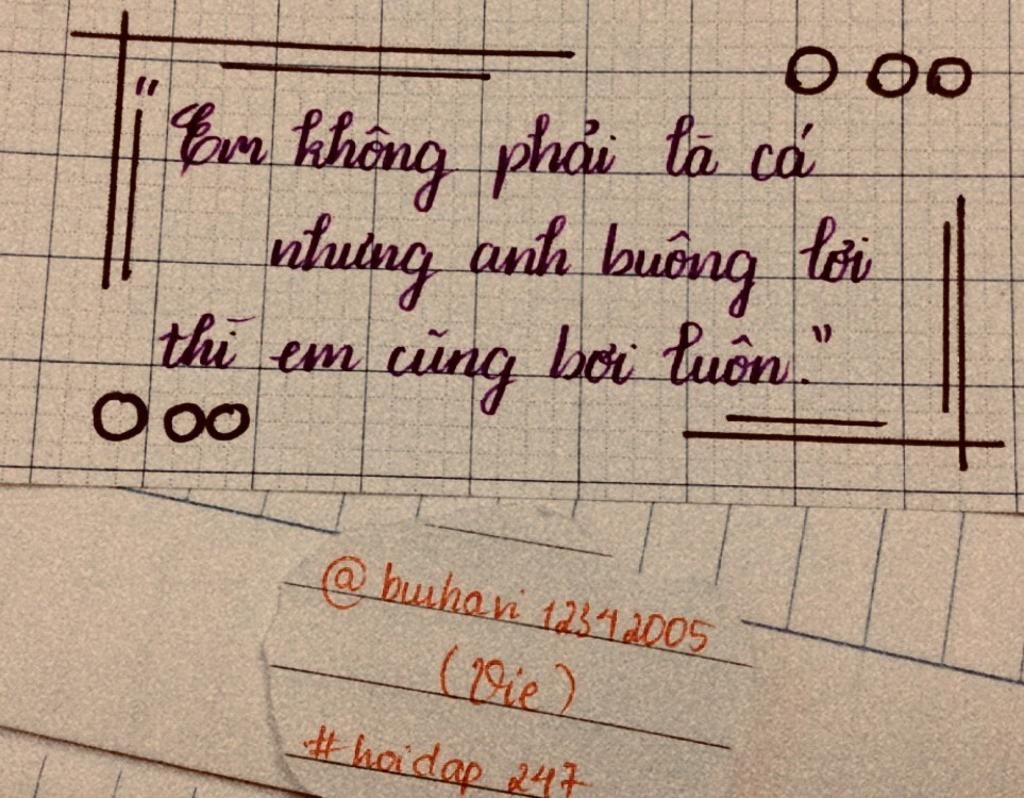 "Em không phải là cá
nhưng anh buông lời
thì em cũng bơi luôn."
@buihavi 12342005
(Vie)
#hoidap 247